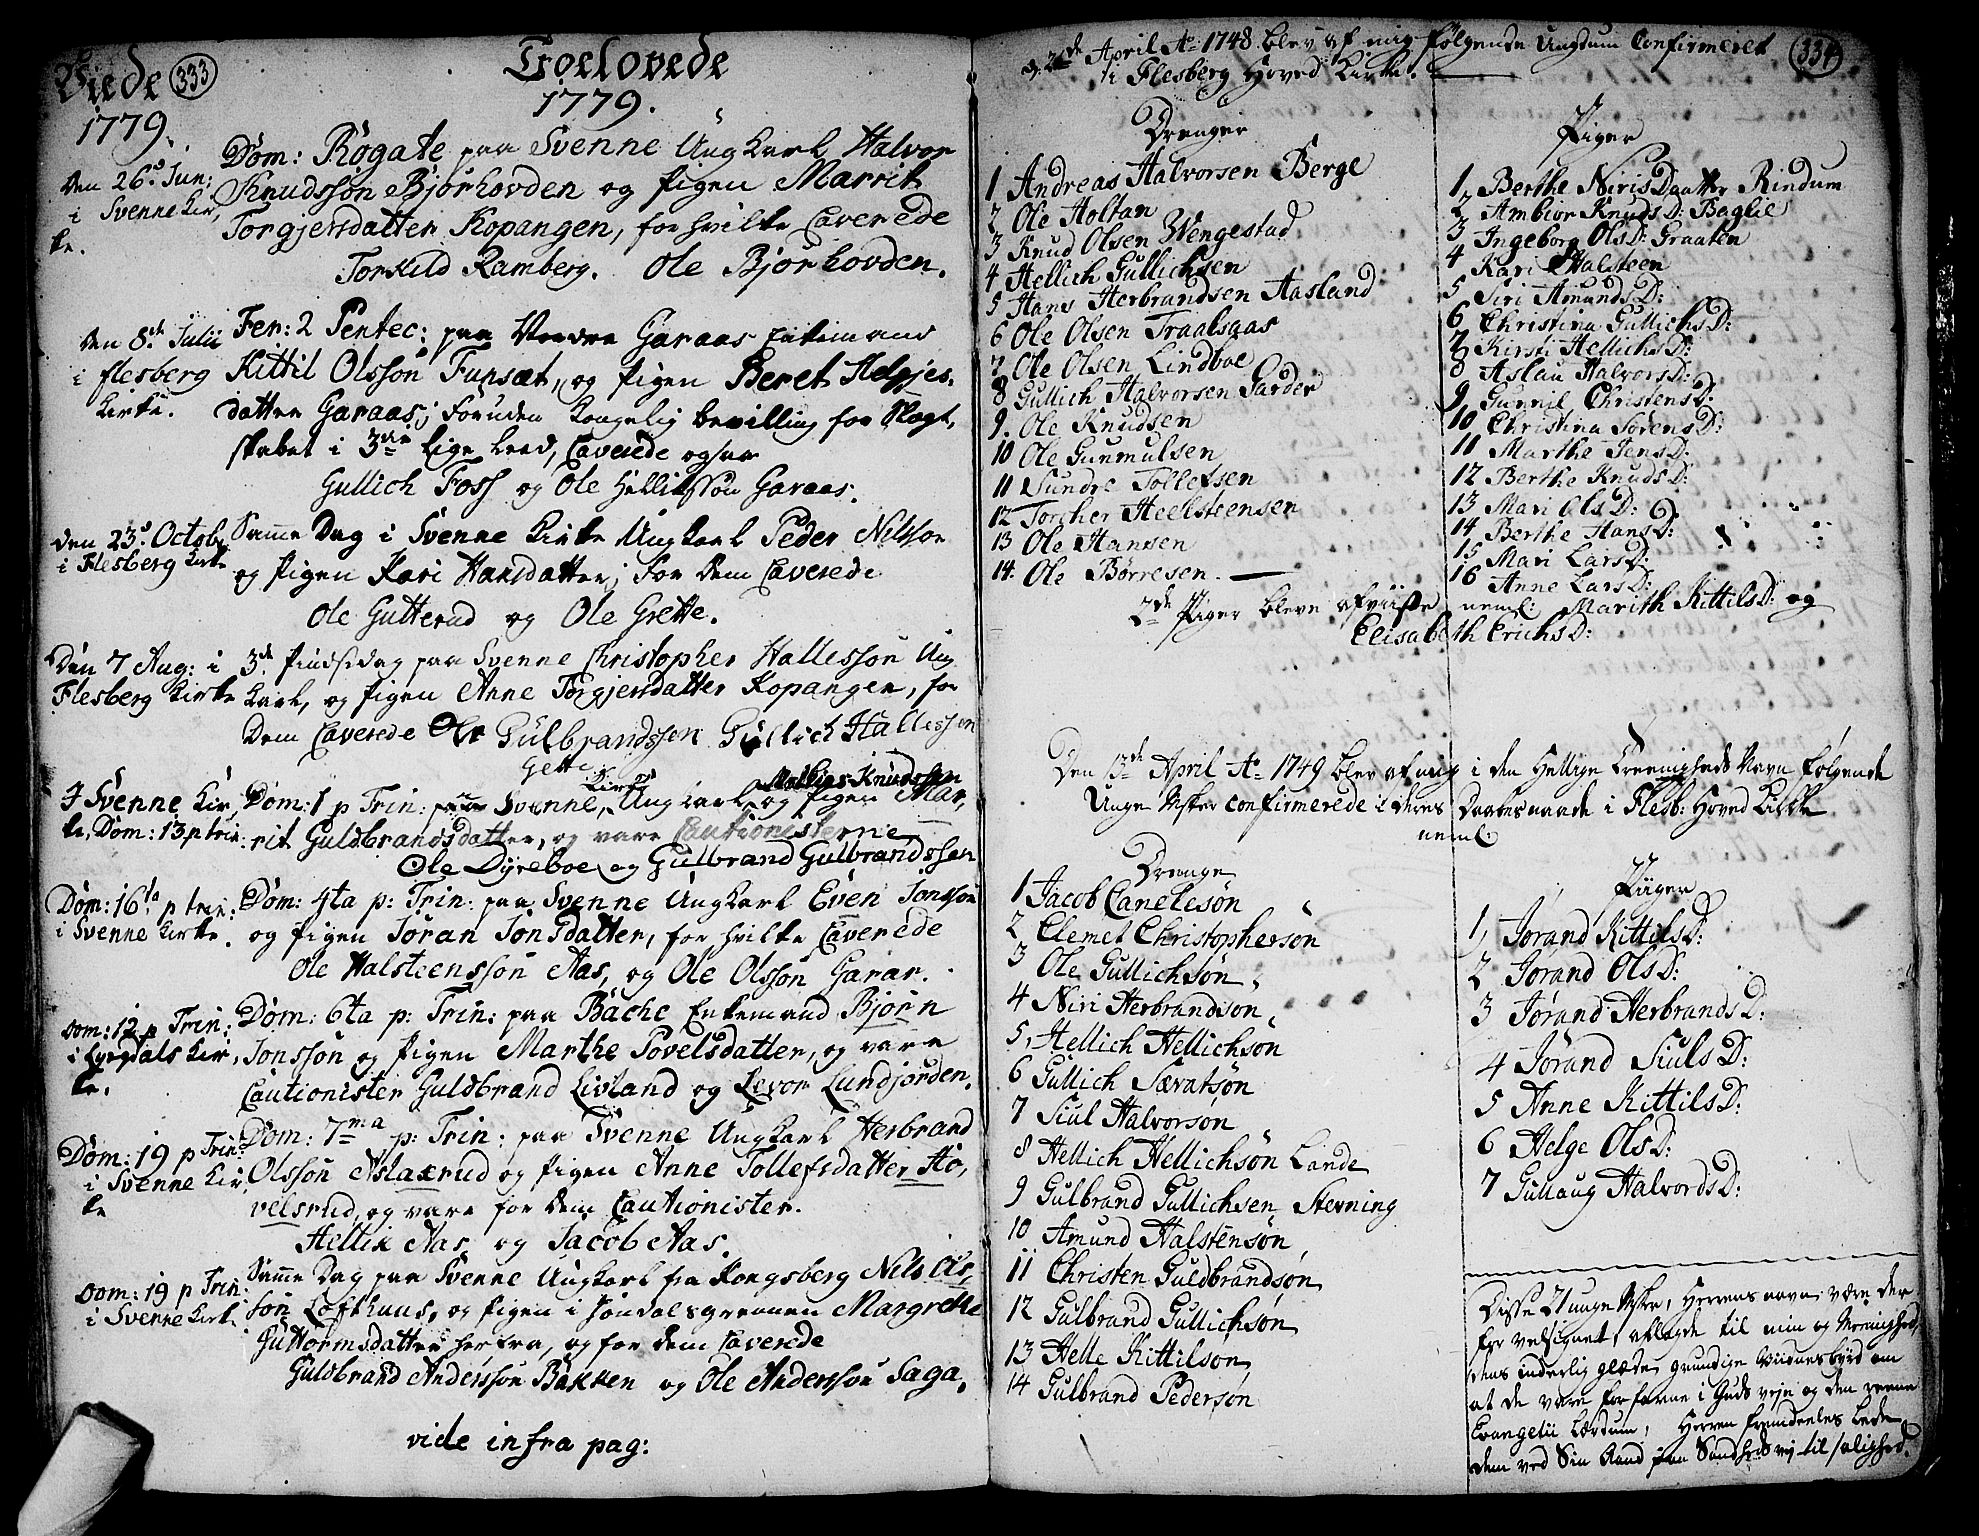 Viede 333
1779.
Troelovede
1779.
Den 26d Jun:
i Svenne Kir,
ke.
Dom: Rogate paa Svenne Ungkarl Halvor
Knudssøn Bjørhovden og Pigen Marrit
Torgjersdatter Kopangen, for hvilke Caverede
Torkild Ramberg. Ole Bjørhovden.
Den 8de Julii
i Flesberg
Kirke.
Fer: 2 Pentec: paa Garaas Enkemand
Kittil Olssøn Funsæt, og Pigen Beret Helgjes,
datter Garaas; foruden Kongelig bevilling for Slægt,
skabet i 3die Lige Leed, Caverede ogsaa
Gullich Foss og Ole Hellikssøn Garaas.
Den 23d Octobr
i Flesberg Kirke
Samme Dag i Svenne Kirke Ungkarl Peder Nilssøn
og Pigen Kari Hansdatter; for dem Caverede
Ole Gutterud og Ole Grette.
Den 7 Aug: i
Flesberg Kirke
3de Pindsdag paa Svenne Christopher Hallessøn Ung
Karl, og Pigen Anne Torgjersdatter Kopangen, for
dem Caverede Ole Gulbrandssen Gullich Hallessen
I Svenne Kir,
ke, Dom: 13 p trin:
Dom: 1 p Trin: paa Svenne Kirke, Ungkarl Mathias Knudssen og Pigen Mar,
rit Guldbrandsdatter, og vare Cautionisterne
Ole Dyreboe og Gulbrand Gulbrandssen
Dom: 16ta p trin:
i Svenne Kirke.
Dom: 4ta p: Trin: paa Svenne Ungkarl Even Jonssøn
og Pigen Jøran Jonsdatter, for hvilke Caverede
Ole Halsteenssøn Aas, og Ole Olssøn Garar.
Dom: 12 p Trin:
i Lyngdals Kir,
ke.
Dom: 6ta p: Trin: paa Bache Enkemand Bjørn
Jonssøn og Pigen Marthe Povelsdatter, og vare
Cautionister Guldbrand Livland og Levor Lundjorden.
Dom: 19 p Trin:
i Svenne Kir
ke
Dom: 7ma p: Trin: paa Svenne Ungkarl Herbrand
Olssøn Aslaxrud og Pigen Anne Tollefsdatter Hø,
velsrud, og vare for dem Cautionister.
Hellix Aas og Jacob Aas.
Dom: 19 p Trin:
i Svenne Kirke
Samme Dag paa Svenne Ungkarl fra Kongsberg Nils Ols,
søn Lofthuus, og Pigen i Jondalsgrenen Margrethe
Guttormsdatter herfra, og for dem Caverede
Guldbrand Anderssøn Bakken og Ole Anderssøn Saga.
vide infra pag:
d. April Ao 1748 blev af mig følgende Ungdum Confirmeret 334
i Flesberg Hoved Kirke.
Drenger
1 Andreas Halvorsen Berge
2 Ole Holtan
3 Knud Olsen Wengestad
4 Hellich Gullichsen
5 Hans Herbrandsen Aasland
6 Ole Olsen Traalsaas
7 Ole Olsen Lindboe
8 Gullich Halvorsen Førder
9. Ole Knudsen
10 Ole Gunmulsen
11 Sundre Tollefsen
12 Torcher Heelsteensen
13 Ole Hansen
14. Ole Børresen.
Piger
1, Berthe NirisDaatter Rindum
2 Ambior KnudsD: Baglie
3 Ingeborg OlsD: Graaten
4 Kari Halsteen
5 Siri AmundsD:
6 Christina GullichsD:
7 Kirsti HellichsD:
8 Aslau HalvorsD:
9 Gunnil ChristensD:
10 Christina SørensD:
11 Marthe JensD:
12 Berthe KnudsD:
13 Mari OlsD:
14 Berthe HansD:
15 Mari LarsD:
16 Anne LarsD:
2de Piger bleve afviiste neml: Marith KittilsD: og
Elisabeth ErichsD:
Den 13de April Ao 1749 blev af mig i den Hellige Treenigheds Navn følgende
Unge Msker confirmerede i deres Daabes naade i Flesb: Hoved Kirke
neml:
Drenge
1 Jacob Canelesøn
2 Clemet Christophersøn
3 Ole Gullichsøn
4 Niri Herbrandsøn
5, Hellich Hellichsøn
6 Gullich Sævatsøn
7 Siul Halvorsøn
8 Hellich Hellichsøn Lande
9 Gulbrand Gullichsen Stevning
10 Amund Halstensøn
11 Christen Guldbrandsøn
12 Gulbrand Gullichsøn
13 Helle Kittilsøn
14 Gulbrand Pedersøn
Piiger
1, Jørand KittilsD:
2 Jørand OlsD:
3 Jørand HerbrandsD:
4 Jørand SiulsD:
5 Anne KittilsD:
6 Helge OlsD:
7 Gullaug HalvordsD:
Disse 21 unge Msker, Herrens navn være der
for velsignet, aflagde til min og Menighed,
dens inderlig glæde, grundige Viidnesbyrd om
at de vare forfarne i Guds veje og den reene
Evangelii Lærdum, Herren fremdeeles Lede
dem ved Sin Aand paa Sandheds vej til salighed.